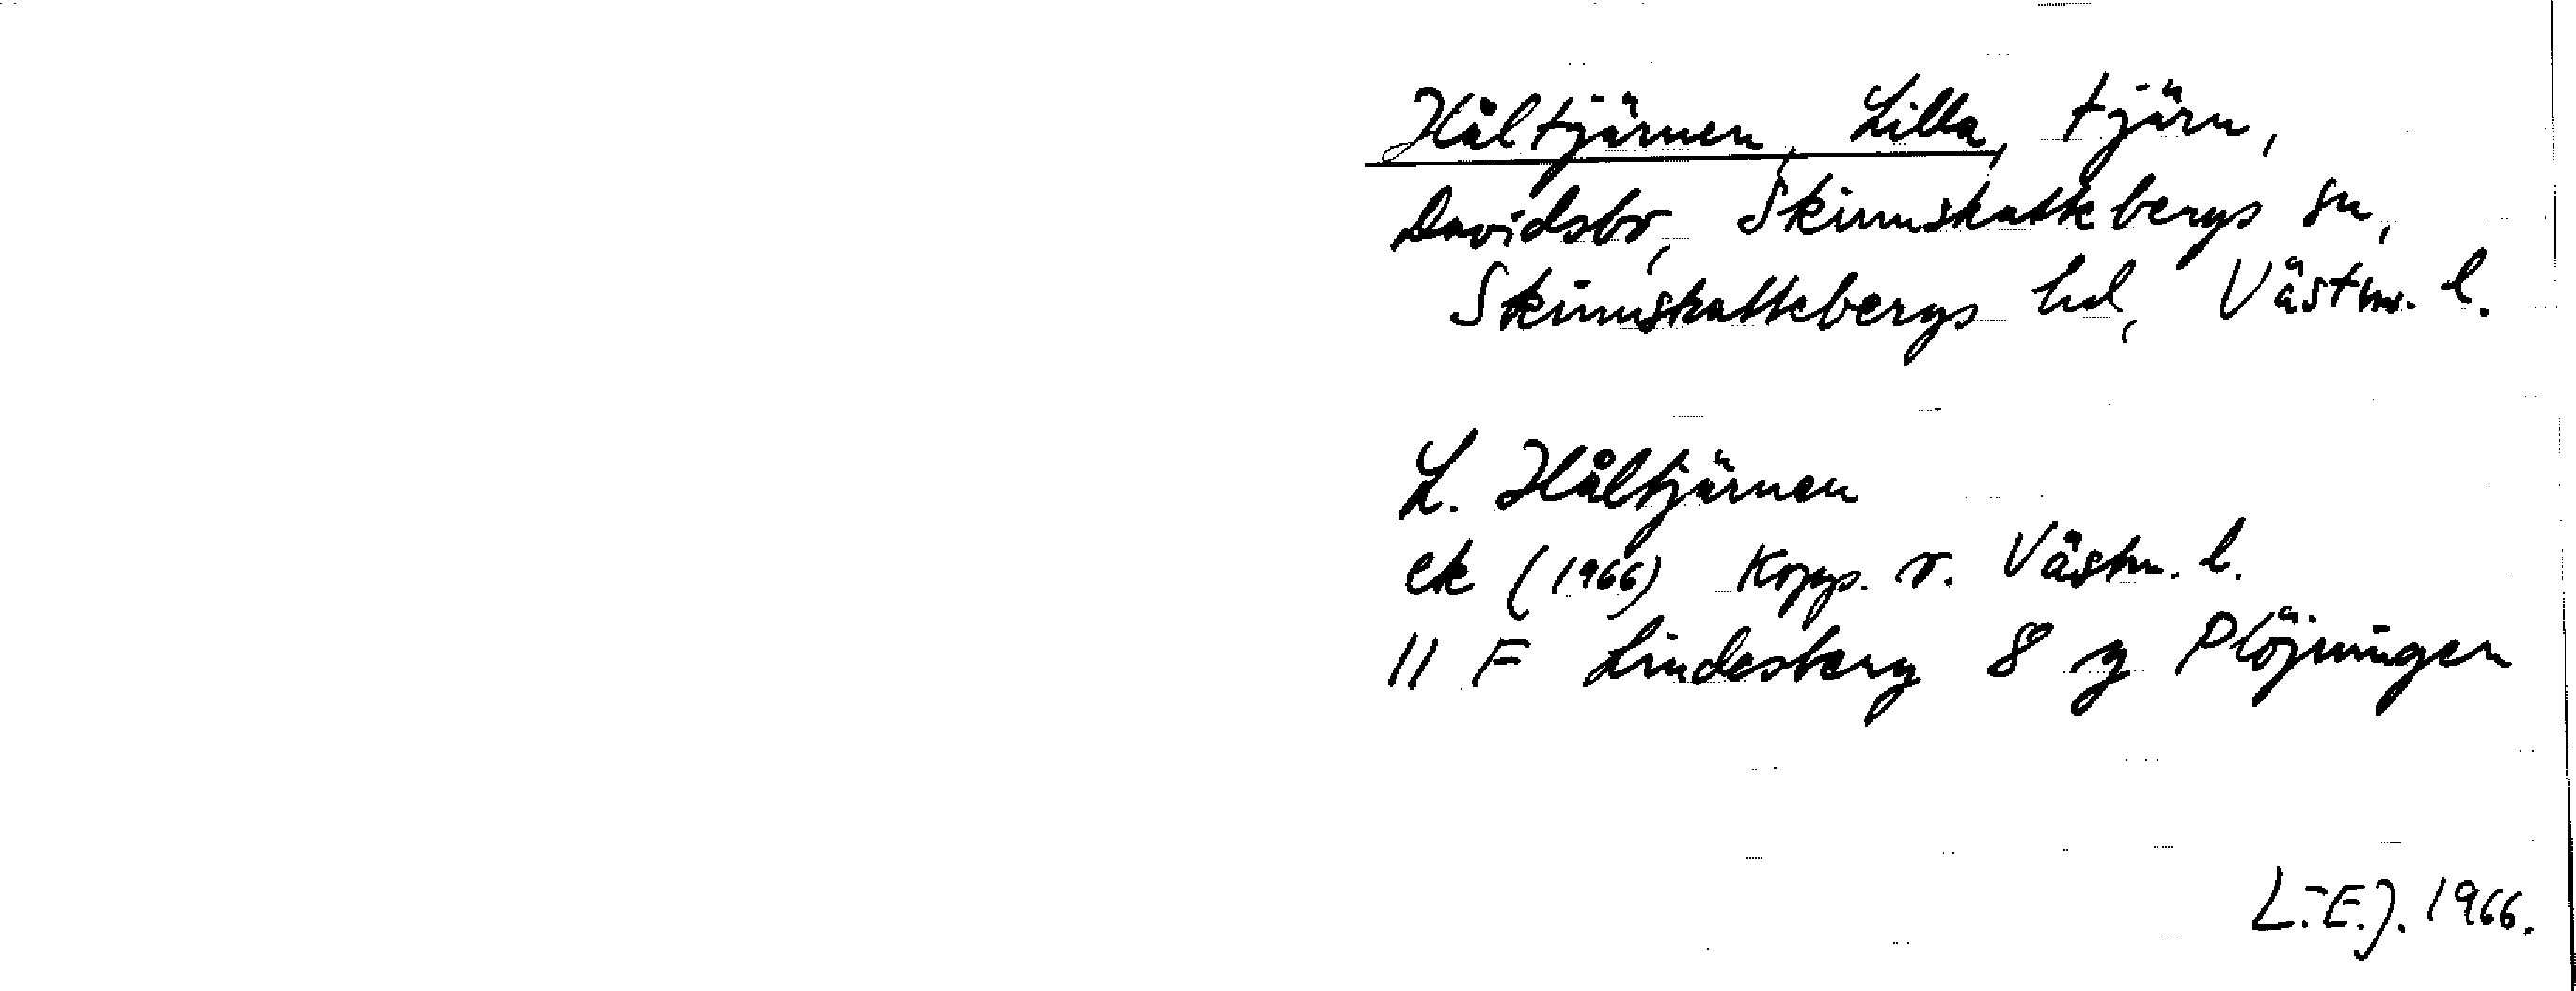 Håltjärnen, Lilla, tjärn,
Davidsbo, Skinnskattebergs sn,
Skinnskattebergs hd, Västm. l.
L. Håltjärnen
ek (1966) Kopp. o. Västm. l.
11 F Lindesberg 8 g Plöjningen
L.-E.J. 1966.